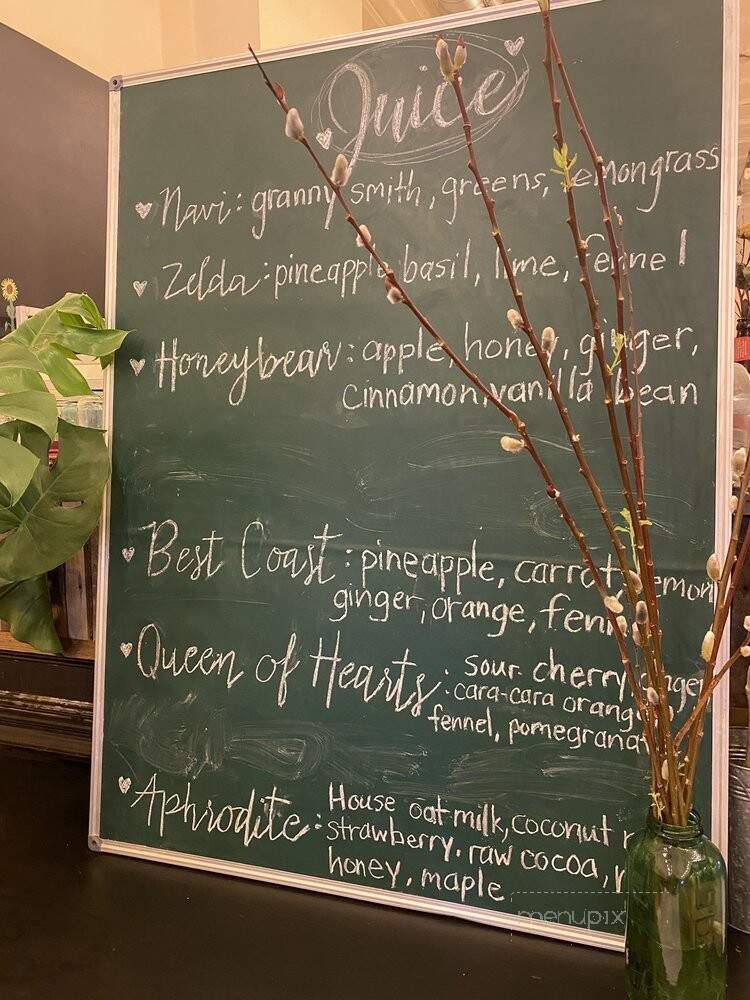 Juice
Navi: granny smith, greens, lemongrass
Zelda: pineapple, basil, lime, fennel
Honeybear: apple, honey, ginger,
cinnamon, vanilla bean
Best Coast: pineapple, carrot, lemon
ginger, orange, fennel
Queen of Hearts: sour cherry, ginger
cara-cara orange
fennel, pomegranate
Aphrodite: House oat milk, coconut
strawberry, raw cocoa,
honey, maple
menupix